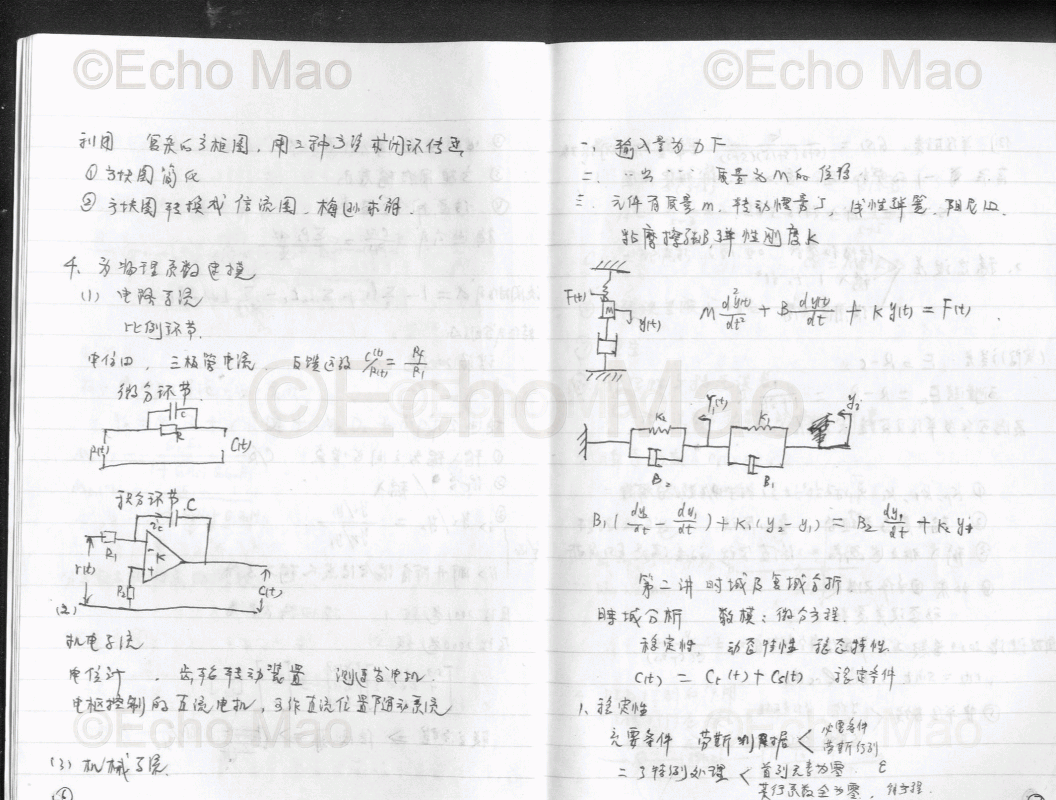 ©Echo Mao
利用 复杂的方框图，用二种方法求闭环传递
① 方块图简化
② 方块图转换成信流图，梅逊求得.
4、为物理系数建模
(1) 电路系统
比例环节.
电位四，三极管电流，反馈 C(t)/R(t) = Rf/R1
微分环节
C
R
R(t) C(t)
积分环节
ic C
R1 K
r(t) R2 C(t)
(2)
机电系统
电位计，齿轮转动装置 测速发电机.
电枢控制的直流电机，工作直流位置随动系统
(3) 机械系统
©Echo Mao
©Echo Mao
一、输入量为力F
二、 质量为M的位移
三、元件有质量m，转动惯量J，线性弹簧，阻尼
粘摩擦 弹性刚度K
F(t) M y(t)
M d²y(t)/dt² + B dy(t)/dt + K y(t) = F(t).
K2 Y1(t) K1 y2
B2 B1
B1( dy2/dt - dy1/dt ) + K1(y2 - y1) = B2 dy1/dt + K2 y1
第二讲 时域及复域分析
时域分析 数模：微分方程
稳定性 动态特性 稳态特性
C(t) = Ct(t) + Cs(t) 稳定条件
1、稳定性
充要条件 劳斯判据 < 必要条件
劳斯行列
二个特例处理 < 首列元素为零 ε
某行系数全为零，
©Echo Mao
©Echo Mao